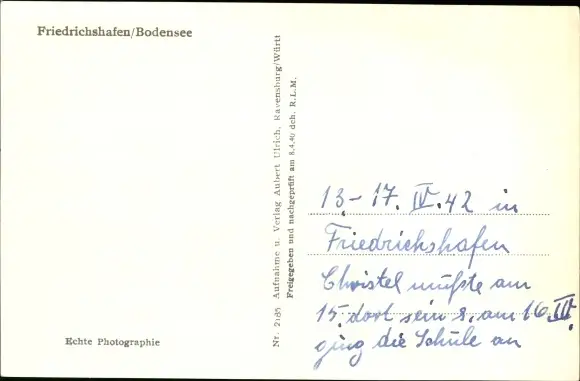 Friedrichshafen/Bodensee
Echte Photographie
Nr. 2185 Aufnahme u. Verlag Aubert Ulrich, Ravensburg/Württ
Freigegeben und nachgeprüft am 8.4.40 dch. R.L.M.
13.-17. IV. 42 in
Friedrichshafen
Christel müßte am
15. dort sein &. am 16. IV.
ging die Schule an